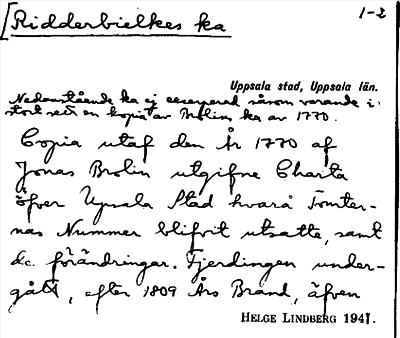 [Ridderbielkes ka
1-2
Uppsala stad, Uppsala län.
Nedanstående ka ej excerperad såsom varande i
stort sett en kopia av Brolins ka av 1770.
Copia utaf den År 1770 af
Jonas Brolin utgifne Charta
öfver Upsala Stad hvarå Tomter-
nas Nummer blifvit utsatte, samt
de förändringar. Fjerdingen under-
gått, efter 1809 Års Brand, äfven
HELGE LINDBERG 1941.